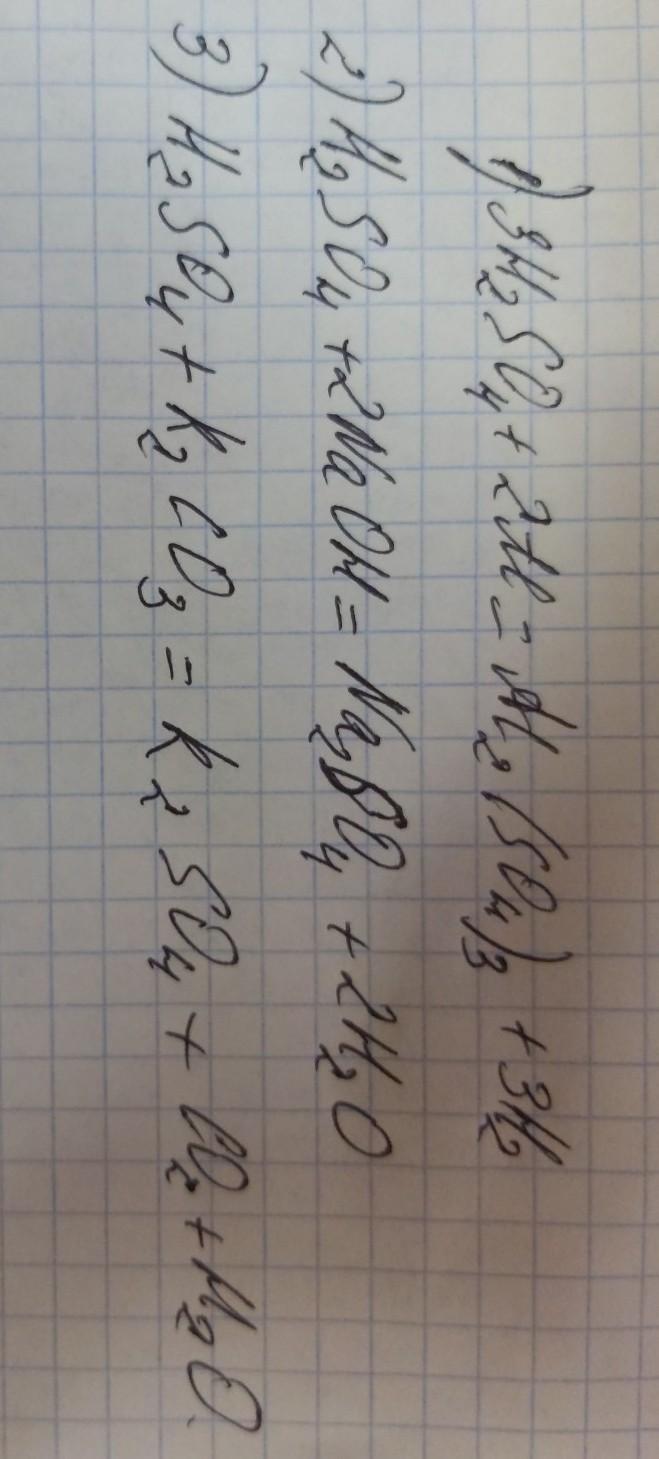 1) 3H₂SO₄ + 2Al = Al₂(SO₄)₃ + 3H₂
2) H₂SO₄ + 2NaOH = Na₂SO₄ + 2H₂O
3) H₂SO₄ + K₂CO₃ = K₂SO₄ + CO₂ + H₂O